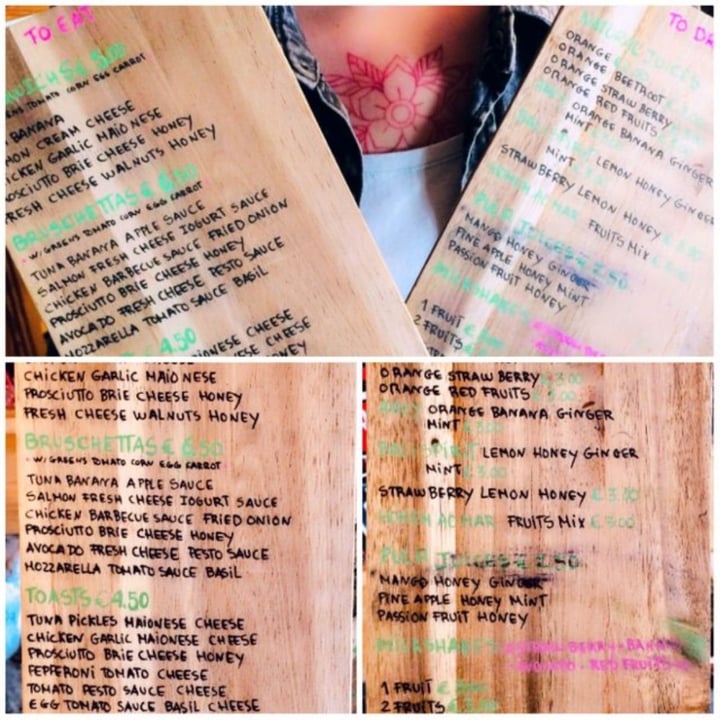 TO EAT
€ 5.00
TOMATO CORN EGG CARROT
BANANA
CREAM CHEESE
GARLIC MAIO NESE
BRIE CHEESE HONEY
FRESH CHEESE WALNUTS HONEY
BRUSCHETTAS € 6.50
W/ GREENS TOMATO CORN EGG CARROT
TUNA BANANA APPLE SAUCE
SALMON FRESH CHEESE IOGURT SAUCE
CHICKEN BARBECUE SAUCE FRIED ONION
PROSCIUTTO BRIE CHEESE HONEY
AVOCADO FRESH CHEESE PESTO SAUCE
MOZZARELLA TOMATO SAUCE BASIL
4.50
CHEESE
CHEESE
TO
NATURAL JUICES
ORANGE
ORANGE BEETROOT
ORANGE STRAW BERRY
ORANGE RED FRUITS
ORANGE BANANA GINGER
MINT
LEMON HONEY GINGER
MINT
STRAWBERRY LEMON HONEY
FRUITS MIX
PULP JUICES € 2.50
MANGO HONEY GINGER
PINE APPLE HONEY MINT
PASSION FRUIT HONEY
MILKSHAKES
1 FRUIT
2 FRUITS
CHICKEN GARLIC MAIO NESE
PROSCIUTTO BRIE CHEESE HONEY
FRESH CHEESE WALNUTS HONEY
BRUSCHETTAS € 6.50
W/ GREENS TOMATO CORN EGG CARROT
TUNA BANANA APPLE SAUCE
SALMON FRESH CHEESE IOGURT SAUCE
CHICKEN BARBECUE SAUCE FRIED ONION
PROSCIUTTO BRIE CHEESE HONEY
AVOCADO FRESH CHEESE PESTO SAUCE
MOZZARELLA TOMATO SAUCE BASIL
TOASTS € 4.50
TUNA PICKLES MAIONESE CHEESE
CHICKEN GARLIC MAIONESE CHEESE
PROSCIUTTO BRIE CHEESE HONEY
FEPPERONI TOMATO CHEESE
TOMATO PESTO SAUCE CHEESE
EGG TOMATO SAUCE BASIL CHEESE
ORANGE STRAW BERRY € 3.00
ORANGE RED FRUITS € 3.00
ORANGE BANANA GINGER
MINT € 3.00
LEMON HONEY GINGER
MINT € 3.00
STRAWBERRY LEMON HONEY € 3.00
FRUITS MIX € 3.00
PULP JUICES € 2.50
MANGO HONEY GINGER
PINE APPLE HONEY MINT
PASSION FRUIT HONEY
MILKSHAKES STRAW BERRY - BANANA
- RED FRUITS
1 FRUIT €
2 FRUITS €